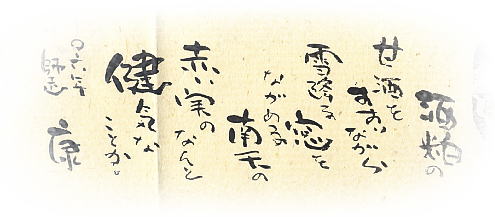 酒粕の
甘酒を
すすりながら
雪降る
窓を
ながめる
南天の
赤い実の
なんと
健気な
ことか。
康